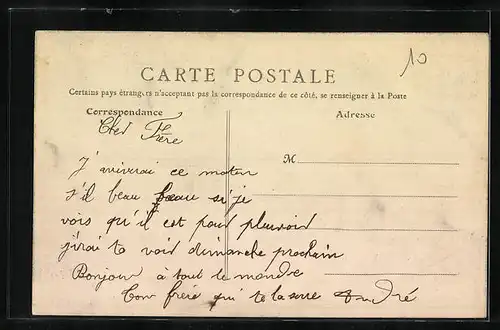 10
CARTE POSTALE
Certains pays étrangers n'acceptant pas la correspondance de ce côté, se renseigner à la Poste
Correspondance
Adresse
Cher Frère
M
J'aviverai ce maten
s'il beau beau si je
vois qu'il est pour pleuvoir
j'irai te voir dimanche prochain
Bonjour à tout le monde
Ton frère qui te la serre André